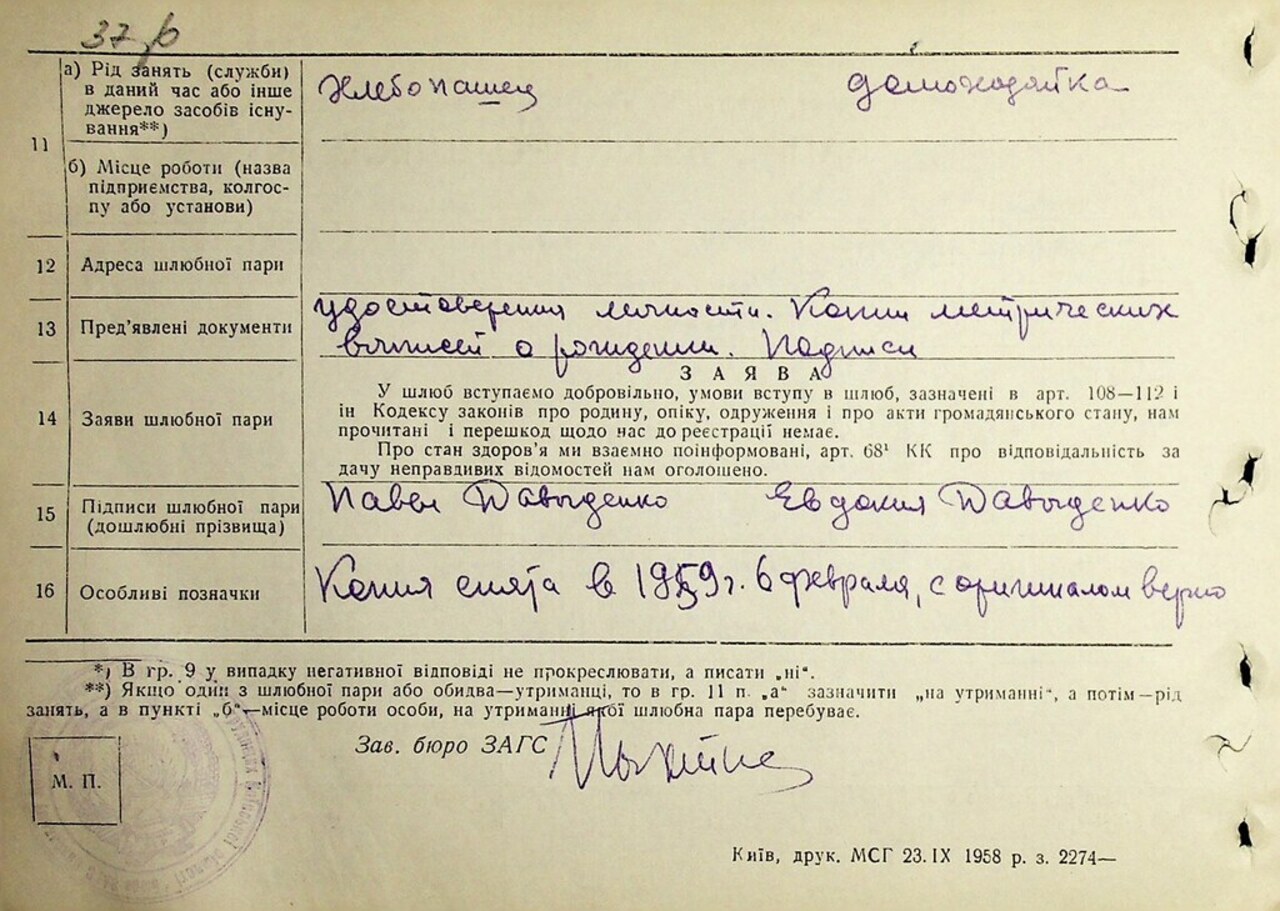 37
11
а) Рід занять (служби)
в даний час або інше
джерело засобів існу-
вання**)
хлебопашец домохозяйка
б) Місце роботи (назва
підприємства, колгос-
пу або установи)
12 Адреса шлюбної пари
13 Пред’явлені документи
удостоверения личности. Копии метрических
выписей о рождении. Подписи
14 Заяви шлюбної пари
ЗАЯВА
У шлюб вступаємо добровільно, умови вступу в шлюб, зазначені в арт. 108—112 і
ін Кодексу законів про родину, опіку, одруження і про акти громадянського стану, нам
прочитані і перешкод щодо нас до реєстрації немає.
Про стан здоров’я ми взаємно поінформовані, арт. 68¹ КК про відповідальність за
дачу неправдивих відомостей нам оголошено.
15 Підписи шлюбної пари
(дошлюбні прізвища)
Павел Давыденко Евдокия Давыденко
16 Особливі позначки
Копия снята в 1959 г. 6 февраля, с оригиналом верно
*) В гр. 9 у випадку негативної відповіді не прокреслювати, а писати „ні“.
**) Якщо один з шлюбної пари або обидва—утриманці, то в гр. 11 п. „а“ зазначити „на утриманні“, а потім—рід
занять, а в пункті „б“—місце роботи особи, на утриманні якої шлюбна пара перебуває.
Зав. бюро ЗАГС
М. П.
Київ, друк. МСГ 23.IX 1958 р. з. 2274—